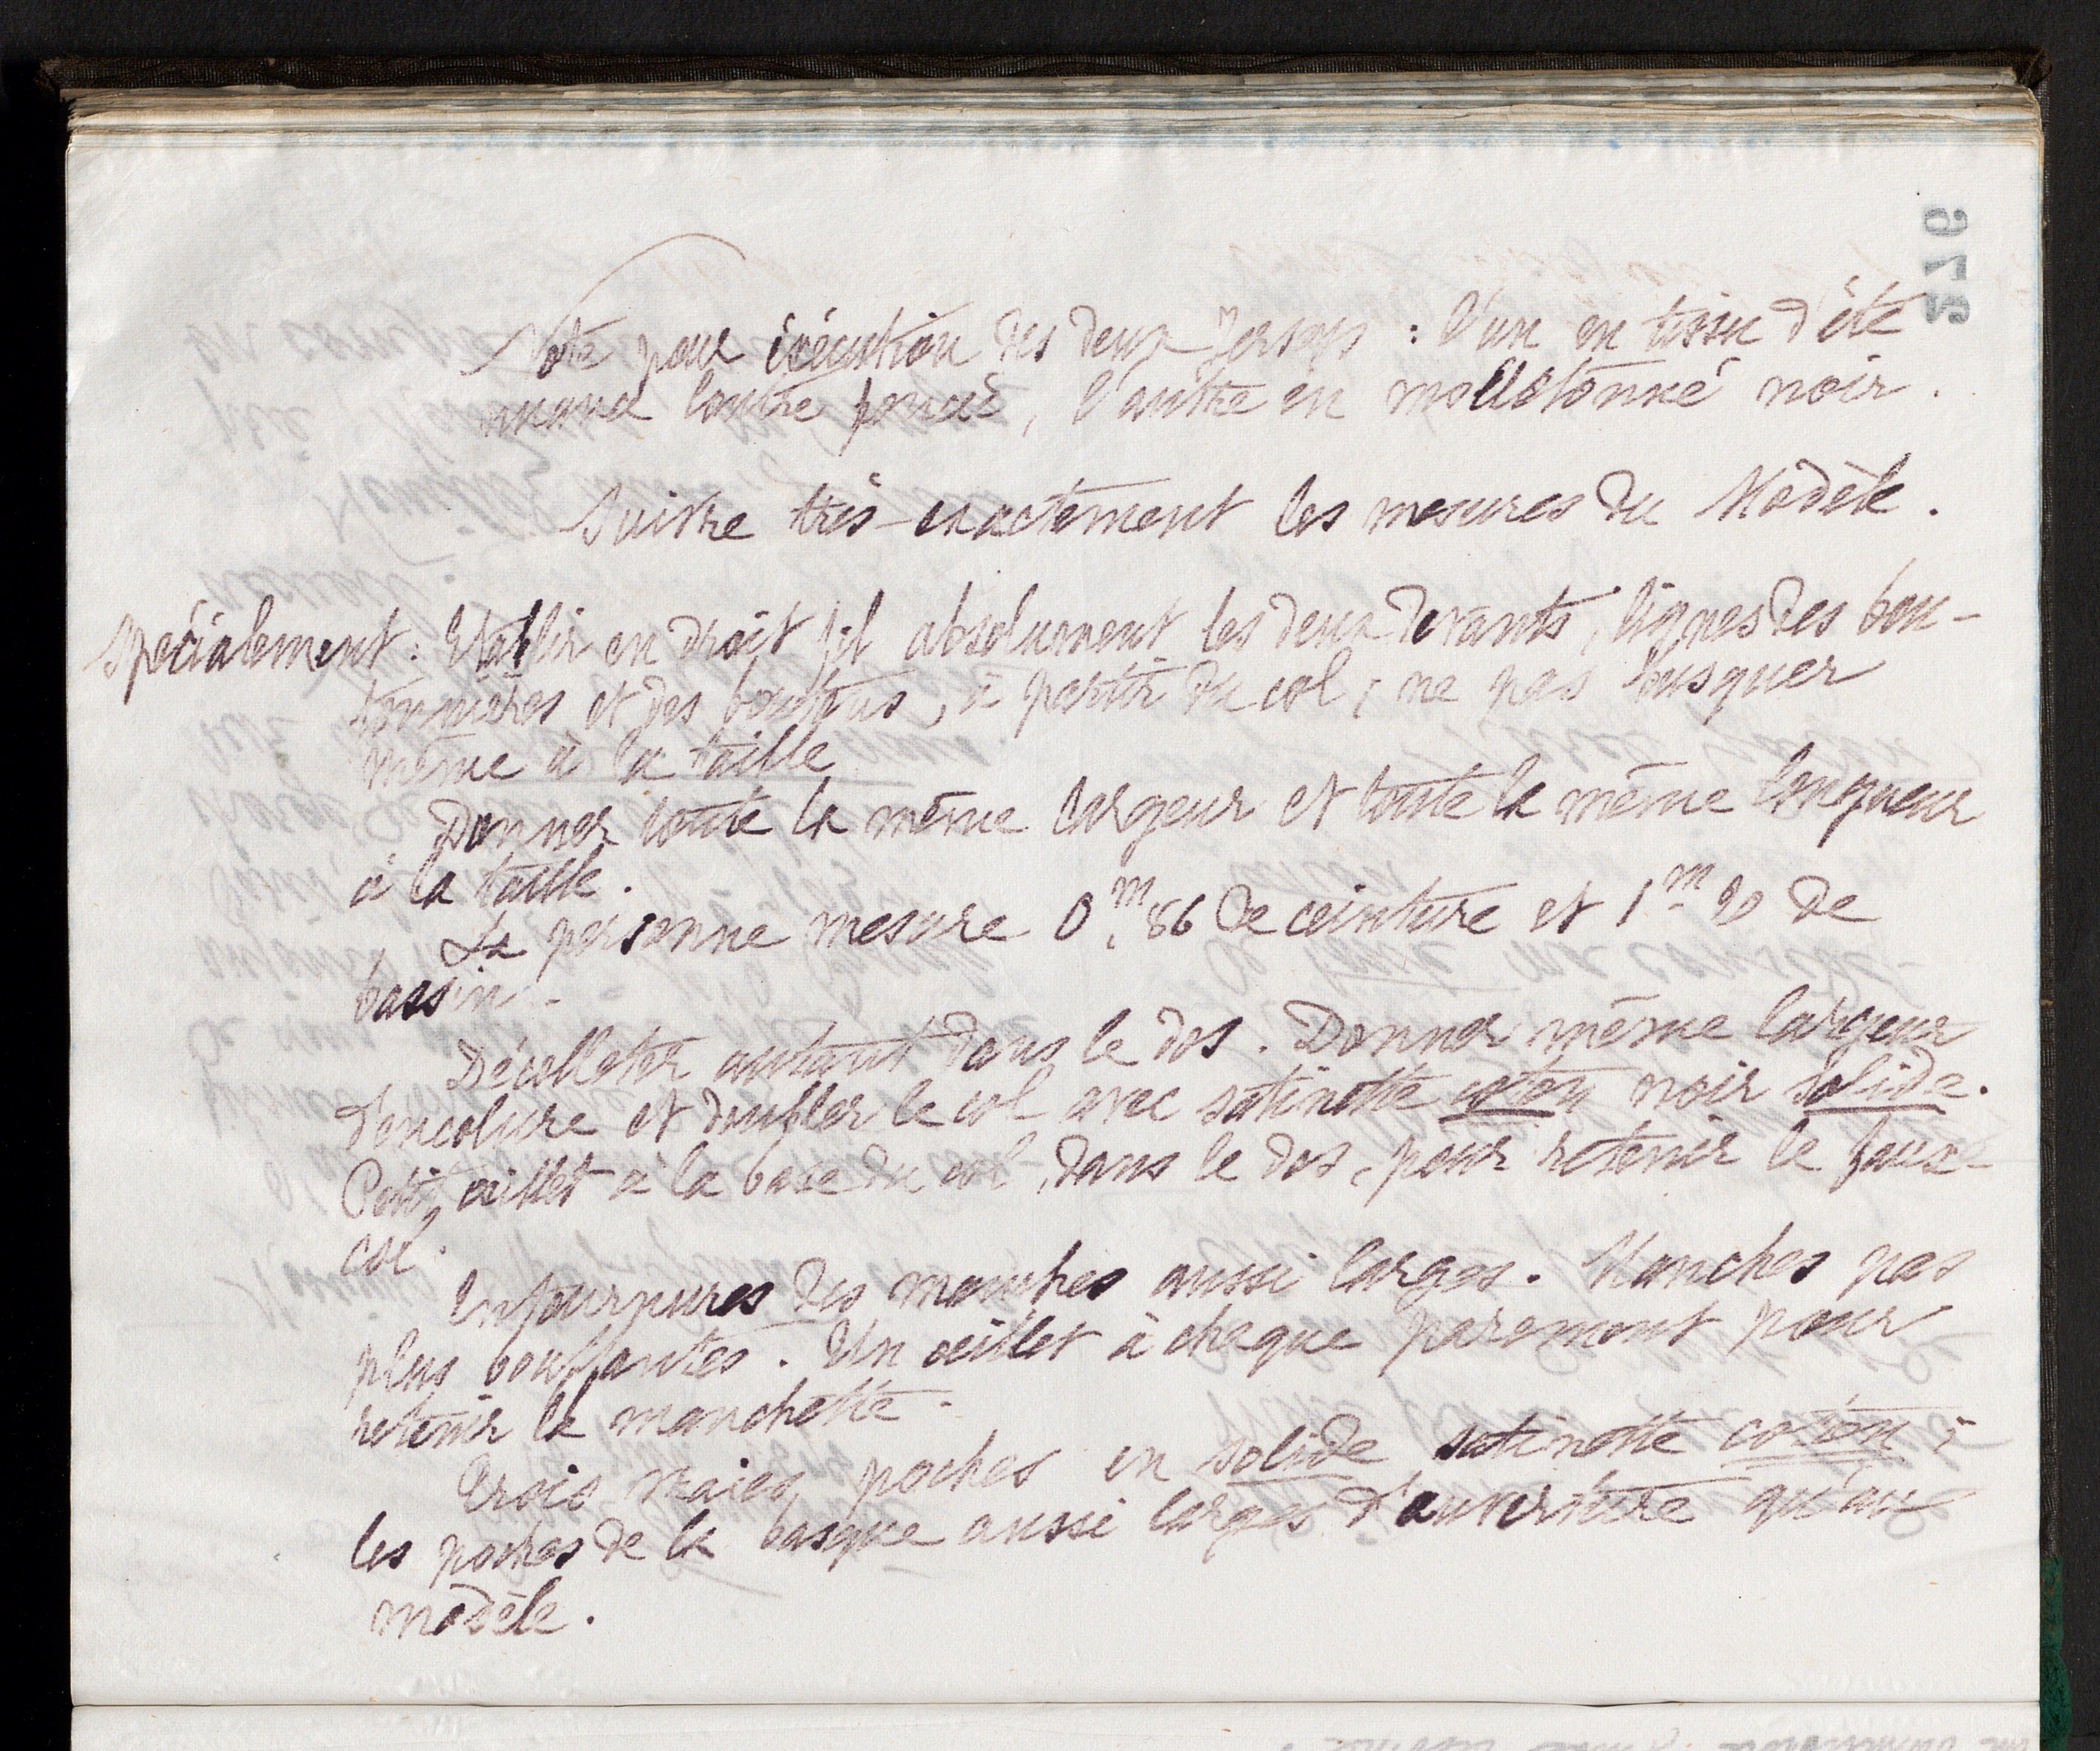 Note pour exécution des deux Jerseys : l'un en tissu d'été
nuance loutre foncé, l'autre en molletonné noir.
Suivre très-exactement les mesures du Modèle.
Spécialement : Etablir en droit fil absolument les deux devants, lignes des bou-
tonnières et des boutons, à partir du col ; ne pas busquer
même à la taille.
Donner toute la même largeur et toute la même longueur
à la taille.
La personne mesure 0m,86 de ceinture et 1m de
bassin.
Décolleter autant dans le dos. Donner même largeur
d'encolure et doubler le col avec satinette coton noir solide.
Petit œillet à la base du col, dans le dos, pour retenir le faux-
col.
Enfournures des manches aussi larges. Manches pas
plus bouffantes. Un œillet à chaque parement pour
retenir la manchette.
Trois vraies poches en solide satinette coton ;
les poches de la basque aussi larges d'ouverture qu'au
modèle.